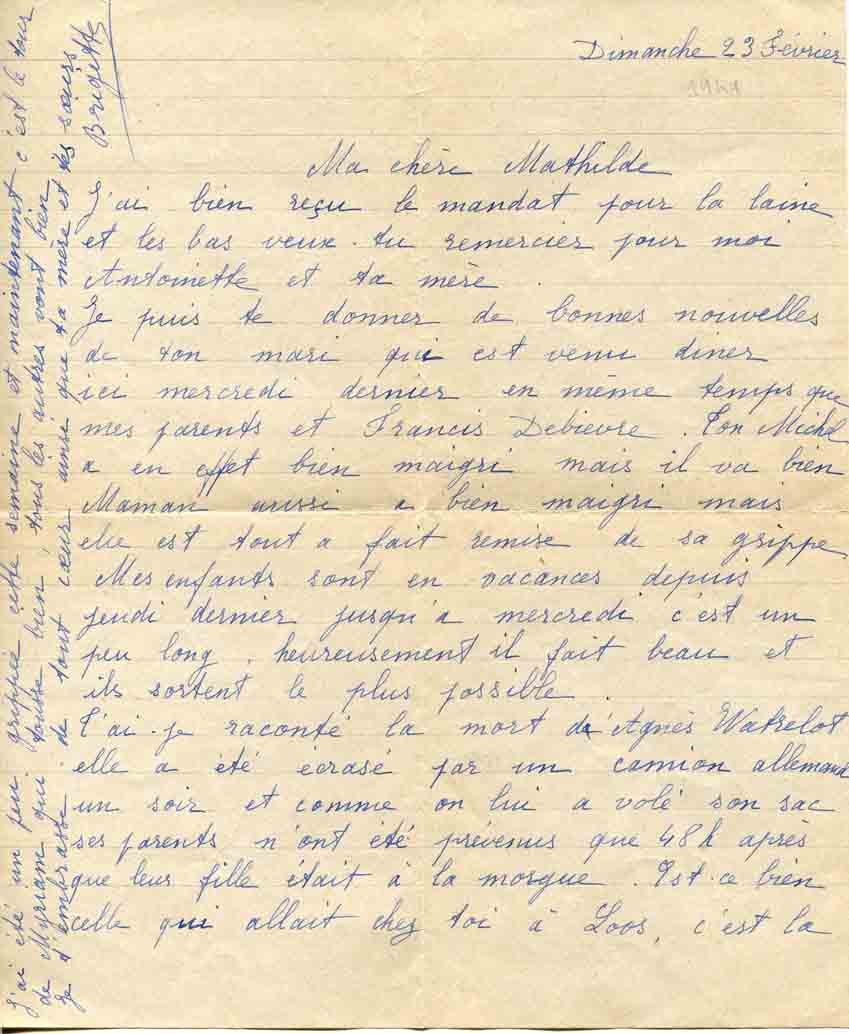 Dimanche 23 Février
1941
Ma chère Mathilde
J'ai bien reçu le mandat pour la laine
et les bas veux-tu remercier pour moi
Antoinette et ta mère.
Je puis te donner de bonnes nouvelles
de ton mari qui est venu diner
ici mercredi dernier en même temps que
mes parents et Francis Debievre. Ton Michel
a en effet bien maigri mais il va bien
Maman aussi a bien maigri mais
elle est tout a fait remise de sa grippe
Mes enfants sont en vacances depuis
jeudi dernier jusqu'a mercredi c'est un
peu long, heureusement il fait beau et
ils sortent le plus possible.
T'ai-je raconté la mort d'Agnès Watrelot
elle a été écrasé par un camion allemand
un soir et comme on lui a volé son sac
ses parents n'ont été prévenus que 48h après
que leur fille était à la morgue. Est-ce bien
celle qui allait chez toi à Loos, c'est la
J'ai été un peu grippée cette semaine et maintenant c'est le tour
de Myriam qui tousse bien, tous les autres vont bien
Je t'embrasse de tout cœur ainsi que ta mère et tes sœurs
Brigitte